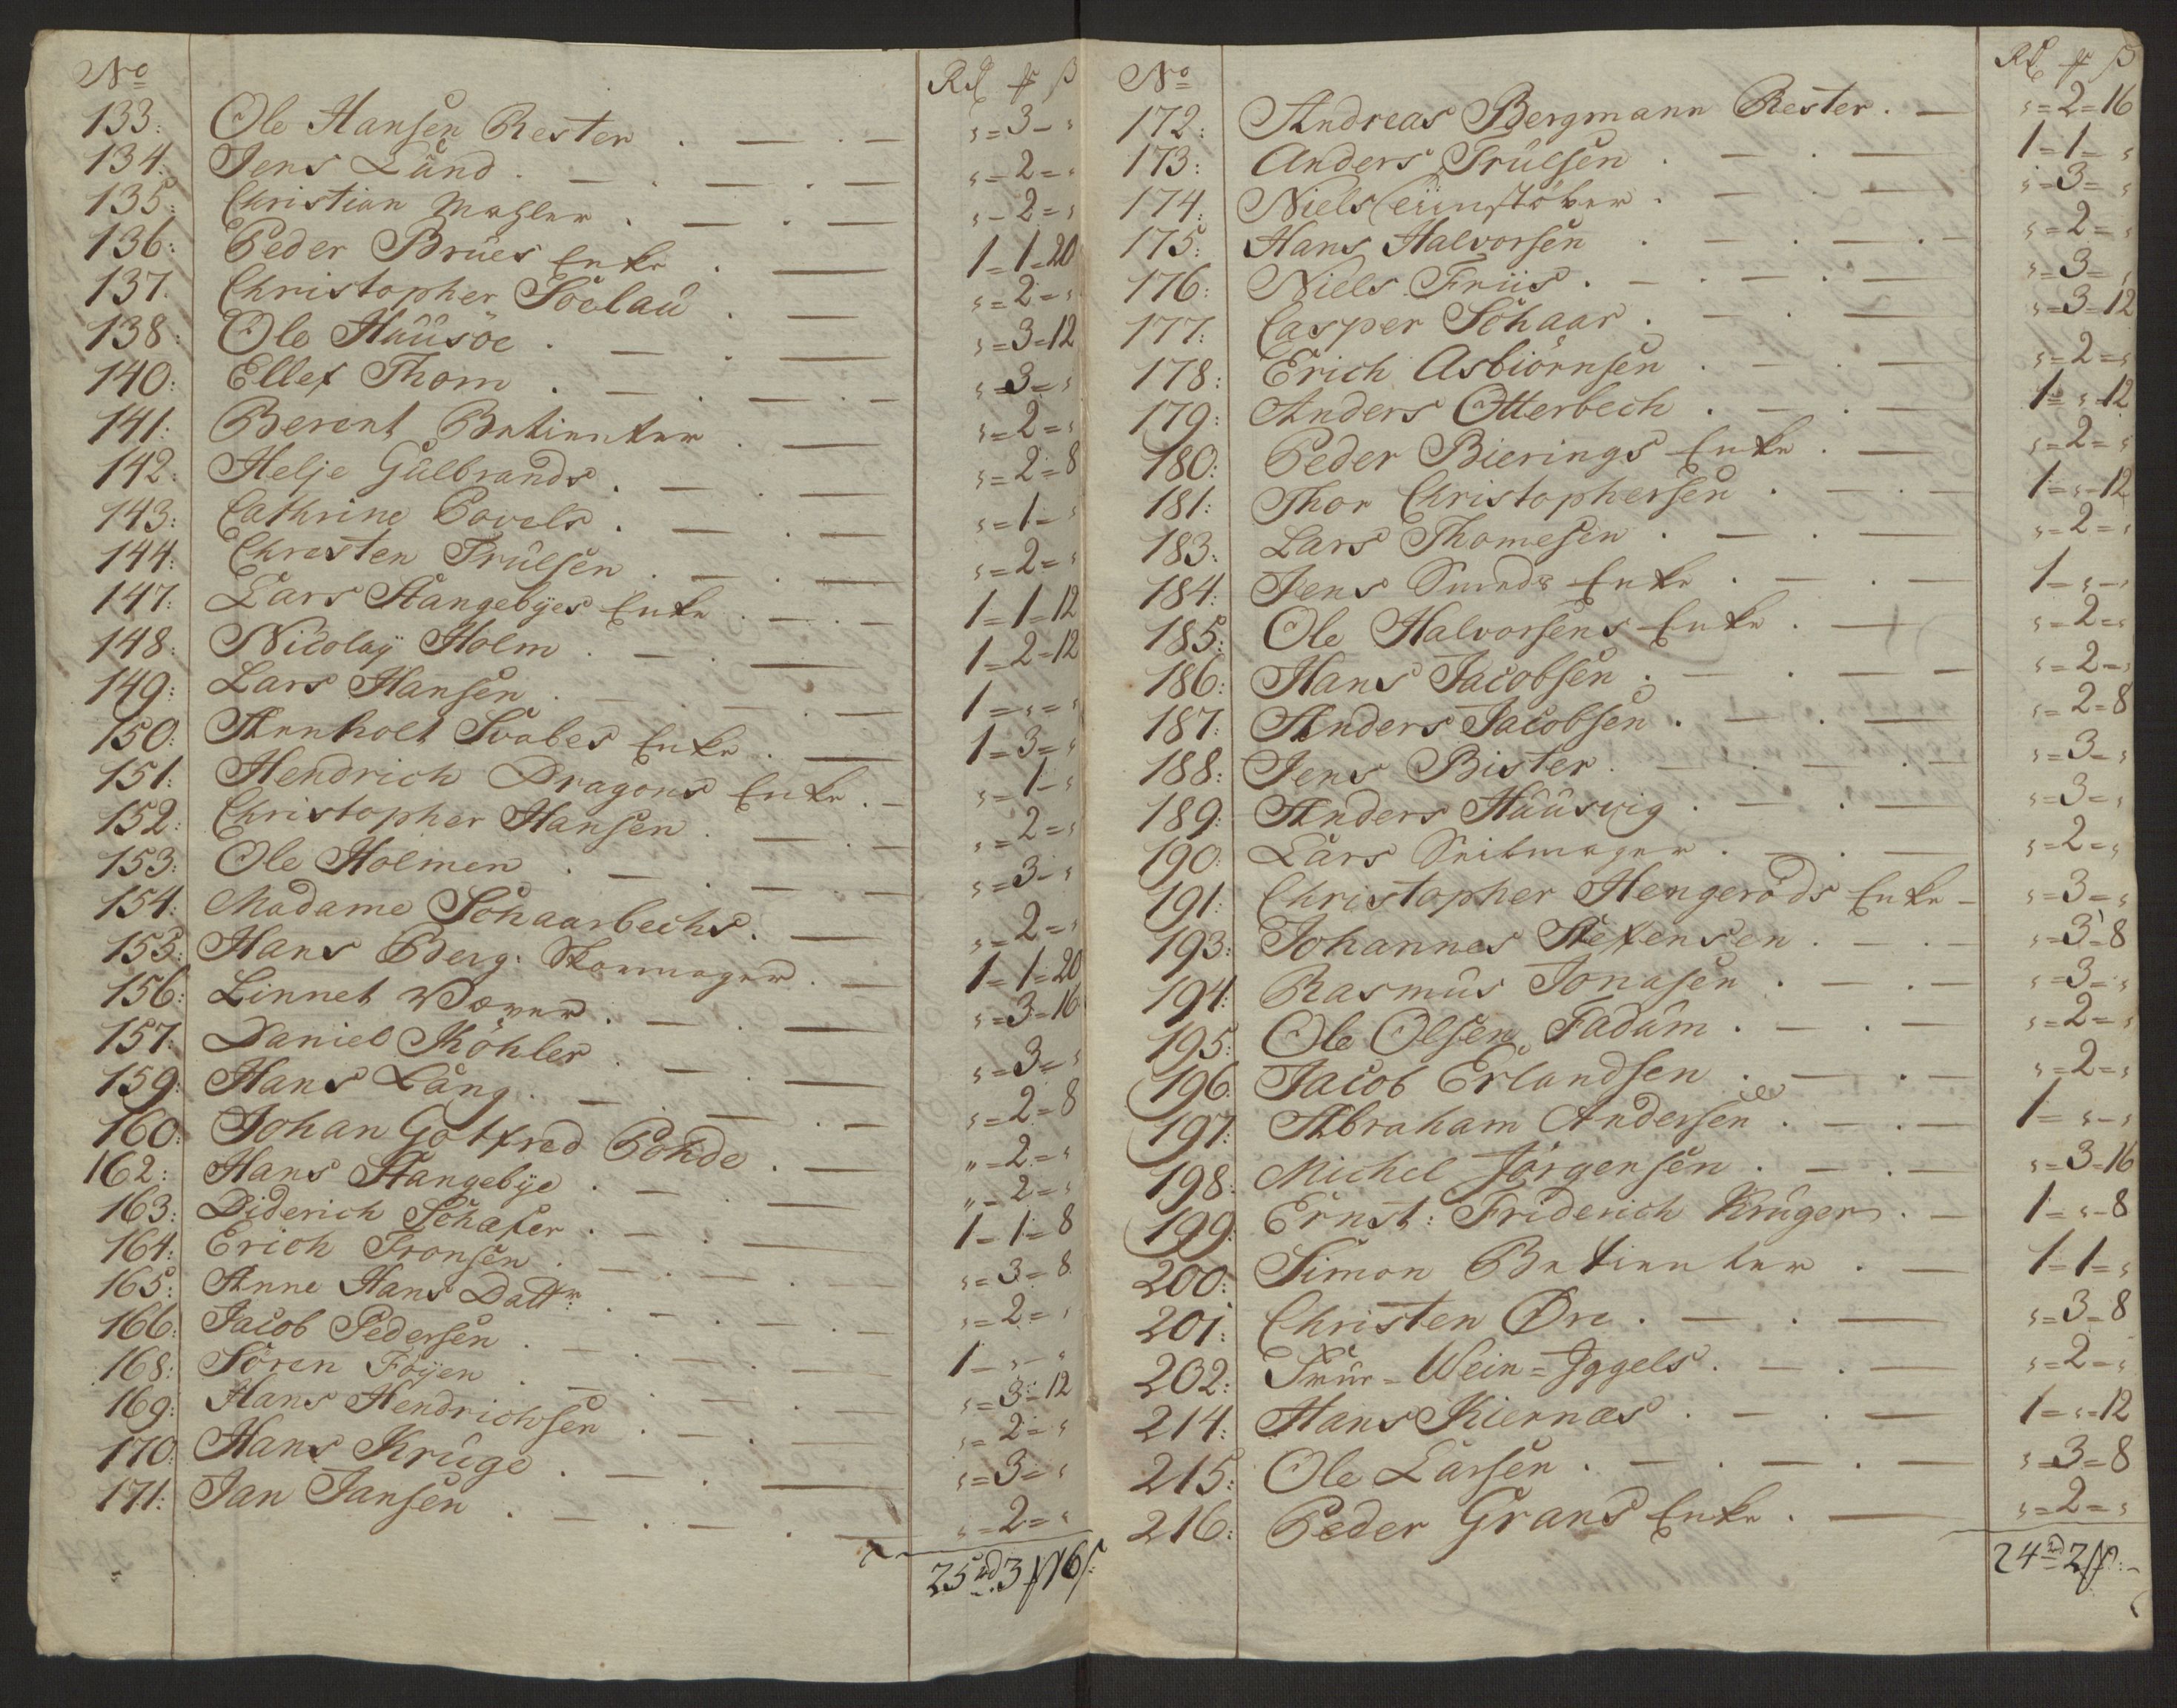 No Rd # ß
133: Ole Hansen Rester . — . — „=3-„
134: Jens Lund . — . — . — „=2=„
135: Christian Mahler . — . — „-2=„
136: Peder Brües Enke . — 1=1=20
137. Christopher Soelau . — „=2=„
138: Ole Hüüsöe . — . — „=3=12
140: Ellef Thom . — . — . — „=3=„
141: Berent Betienter . — „=2=„
142: Helje Gulbrands . — . — „=2=8
143: Cathrine Povels . — . — „=1=„
144: Christen Trulsen . — . — „=2=„
147: Lars Stangebyes Enke . — . — 1=1=12
148: Nicolay Holm . — . — 1=2=12
149: Lars Hansen . — . — . — 1=„=„
150: Arnholt Svabes Enke . — 1=3=„
151: Hendrich Dragons Enke . — „=1-„
152: Christopher Hansen . — . — „=2=„
153: Ole Holmen . — . — . — „=3-„
154: Madame Schaarbechs . — „=2=„
155: Hans Ederg: Skoemager . — 1=1=20
156: Linnet Wæver . — . — „=3=16
157: Daniel Köhler . — . — „=3=„
159: Hans Lang . — . — . — „=2=8
160: Johan Gotfred Pohde . — „=2=„
162: Hans Stangebye . — . — „=2=„
163: Diderich Schafer . — . — 1=1=8
164: Erich Tronsen . — . — . „=3=8
165: Anne Hans Dattr . — . — „=2=„
166: Jacob Pedersen . — . — . — 1=„=„
168: Sören Föyen . — . — . „=3=12
169: Hans Hendrichsen . — . — „=2=„
170: Hans Krüge . — . — „=3=„
171: Jan Jansen . — . — . — „=2=„
25rd 3 # 16ß
No Rd # ß
172: Andreas Bergmann Rester . — „=2=16
173: Anders Trulsen . — . — 1=1=„
174: Niels Leiinstöber . — . — „=3=„
175: Hans Halvorsen . — . — . — „=2=„
176: Niels Friis . — . — . — „=3=„
177: Casper Schaar . — . — „=3=12
178: Erich Asbiörnsen . — . — „=2=„
179: Anders Otterbech . — . — 1=„=12
180: Peder Bierings Enke . — „=2=„
181: Thor Christophersen . — . — 1=„=12
183: Lars Thomesen . — . — „=2=„
184: Jens Smeds Enke . — . — 1=„=„
185: Ole Halvorsens Enke . — „=2=„
186: Hans Jacobsen . — . — . — „=2=„
187: Anders Jacobsen . — . — „=2=8
188: Jens Bister . — . — . — „=3=„
189: Anders Hüüsvig . — . — „=3=„
190: Lars Seilmager . — . — „=2=„
191: Christopher Hengeröds Enke — „=3=„
193: Johannes Stefensen . — . — „=3=8
194: Rasmus Jonasen . — . — „=3=„
195: Ole Olsen Fadüm . — . — „=2=„
196: Jacob Erlandsen . — . — „=2=„
197: Abraham Andersen . — . — 1=„=„
198: Michel Jörgensen . — . — „=3=16
199: Ernst: Friderich Krüger . — 1=„=8
200: Simon Betienter . — 1=1=„
201: Christen Öre . — . — „=3=8
202: Frür=Wein=Iggels . — . — „=2=„
214: Hans Kiernæs . — . — 1=„=12
215: Ole Larsen . — . — . — „=3=8
216: Peder Grans Enke . — „=2=„
24rd 2 #:-